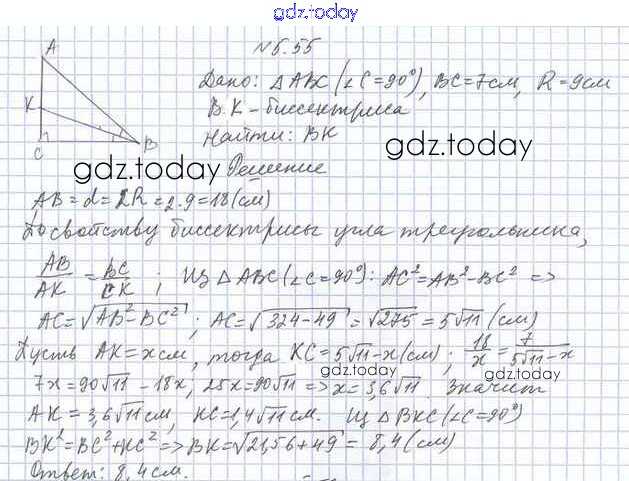 gdz.today
№ 6.55
A
K
C
B
Дано: △ABC (∠C=90°), BC=7см, R=9см
BK - биссектриса
Найти: BK
gdz.today
gdz.today
Решение
AB = d = 2R = 2·9 = 18 (см)
По свойству биссектрисы угла треугольника,
AB/AK = BC/CK ; Из △ABC (∠C=90°): AC²=AB²-BC² =>
AC=√(AB²-BC²) ; AC=√(324-49) = √275 = 5√11 (см)
Пусть AK=x см, тогда KC=5√11-x (см) ; 18/x = 7/(5√11-x)
gdz.today
7x=90√11-18x, 25x=90√11 => x=3,6√11. Значит
gdz.today
AK=3,6√11 см, KC=1,4√11 см. Из △BKC (∠C=90°)
BK²=BC²+KC² => BK=√(21,56+49) = 8,4 (см)
Ответ: 8,4 см.